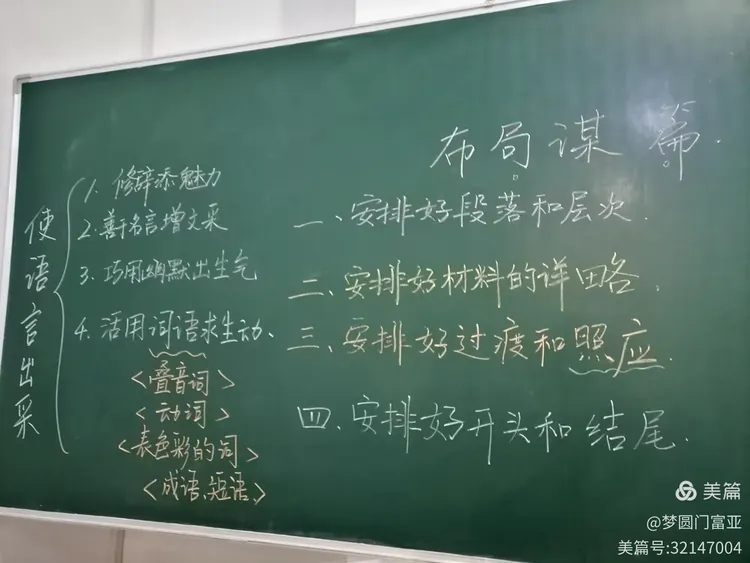 使语言出采
1. 修辞添魅力
2. 善于名言增文采
3. 巧用幽默出生气
4. 活用词语求生动、
<叠音词>
<动词>
<表色彩的词>
<成语、短语、>
布局谋篇.
一、安排好段落和层次.
二、安排好材料的详略.
三、安排好过渡和照应.
四、安排好开头和结尾.
美篇
@梦圆门富亚
美篇号:32147004